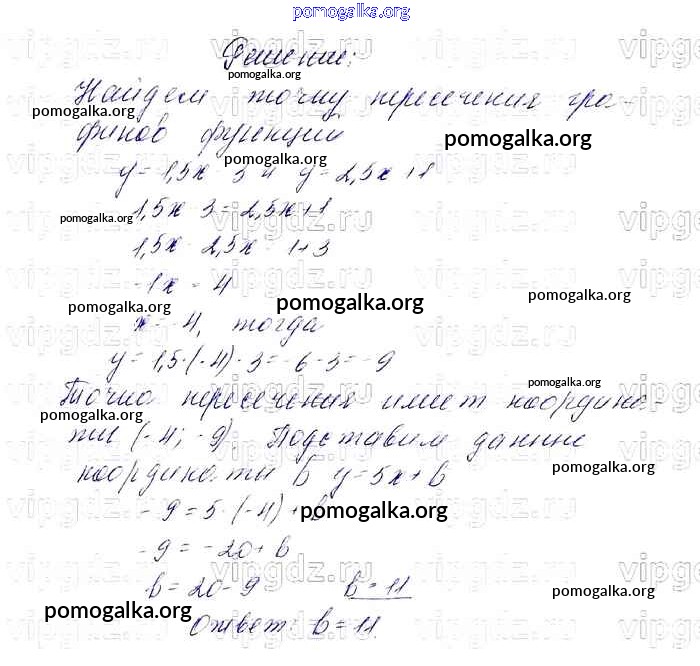 pomogalka.org
Решение:
pomogalka.org
Найдем точку пересечения гра-
pomogalka.org
фиков функций
pomogalka.org
pomogalka.org
y = 1,5x - 3 и y = 2,5x + 1
1,5x - 3 = 2,5x + 1
pomogalka.org
1,5x - 2,5x = 1 + 3
-1x = 4
pomogalka.org
pomogalka.org
pomogalka.org
x = -4, тогда
y = 1,5·(-4) - 3 = -6 - 3 = -9
pomogalka.org
Точка пересечения имеет координа-
pomogalka.org
ты (-4; -9) Подставим данные
координаты в y = 5x + b
pomogalka.org
-9 = 5·(-4) + b
pomogalka.org
-9 = -20 + b
b = 20 - 9 b = 11
pomogalka.org
pomogalka.org
Ответ: b = 11.
vipgdz.ru